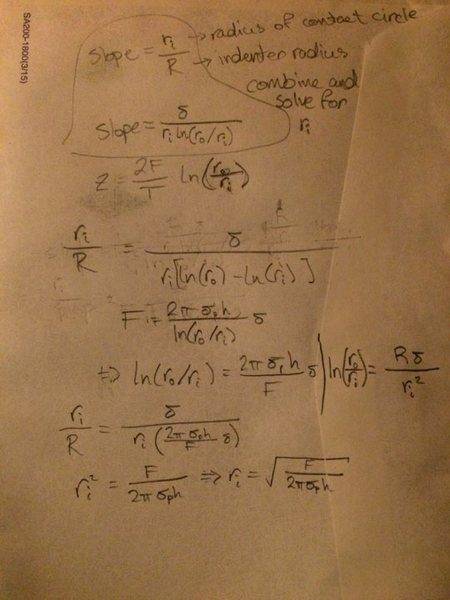 SA200-1800(3/15)
slope = rᵢ/R → radius of contact circle
→ indenter radius
combine and
solve for
rᵢ
slope = δ/(rᵢ ln(r₀/rᵢ))
z = 2F/T ln(r₀/rᵢ)
rᵢ/R = δ/(rᵢ[ln(r₀) - ln(rᵢ)])
F = (2π σₚ h)/(ln(r₀/rᵢ)) δ
⇒ ln(r₀/rᵢ) = (2π σₚ h)/F δ | ln(r₀/rᵢ) = Rδ/rᵢ²
rᵢ/R = δ/(rᵢ((2π σₚ h)/F δ))
rᵢ² = F/(2π σₚ h) ⇒ rᵢ = √(F/(2π σₚ h))